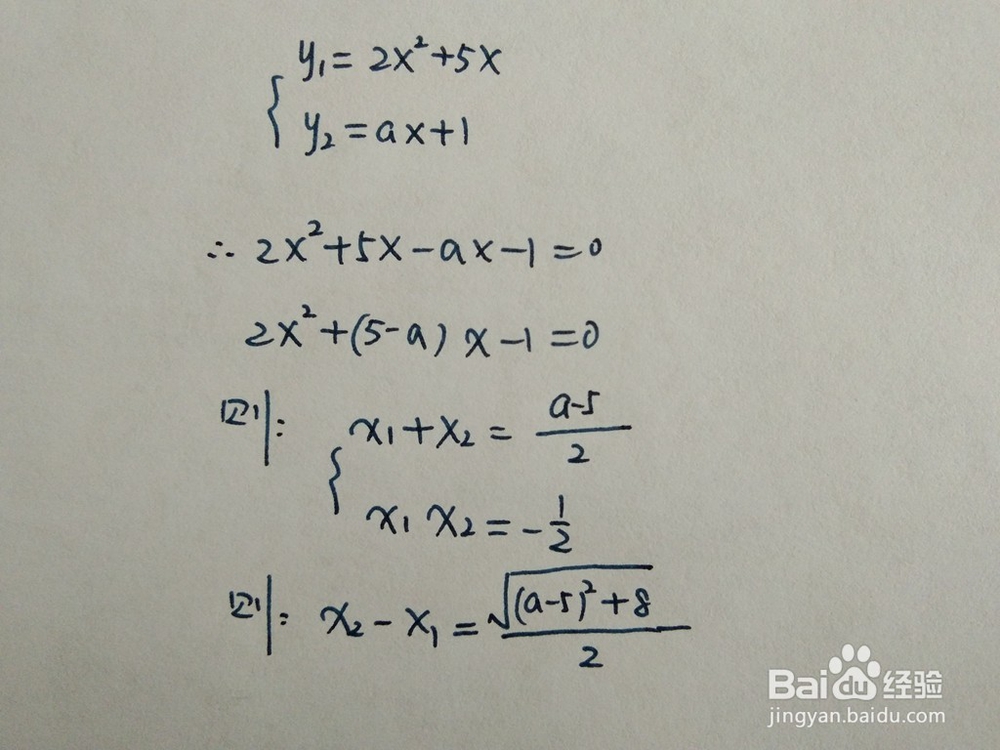 y₁ = 2x² + 5x
y₂ = ax + 1
∴ 2x² + 5x - ax - 1 = 0
2x² + (5-a) x - 1 = 0
则: x₁ + x₂ = (a-5)/2
x₁ x₂ = -1/2
则: x₂ - x₁ = √((a-5)² + 8)/2
Baidu经验
jingyan.baidu.com